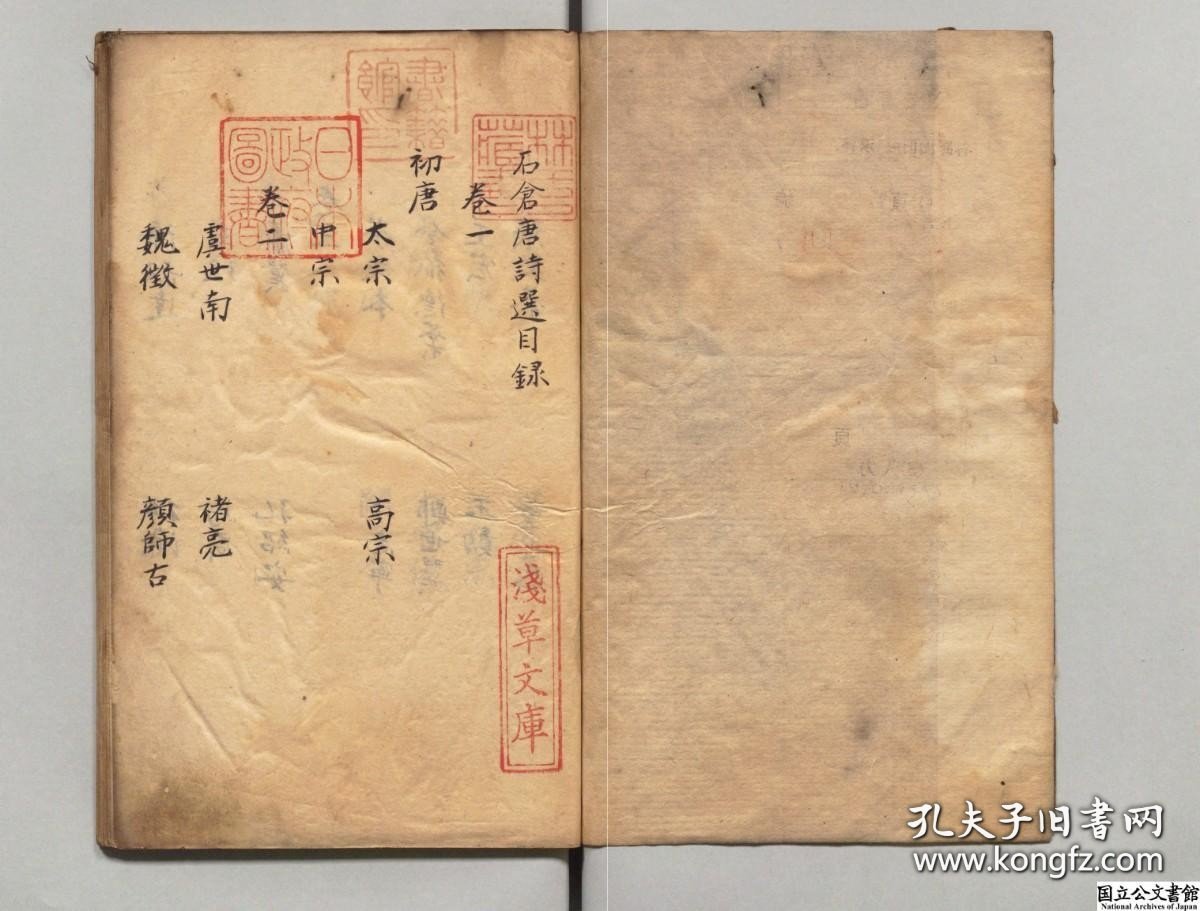 石倉唐詩選目録
卷一
初唐
太宗
高宗
中宗
卷二
虞世南
褚亮
魏徵
顏師古
書籍館印
林氏藏書
日本政府圖書
淺草文庫
孔夫子旧书网
www.kongfz.com
国立公文書館
National Archives of Japan